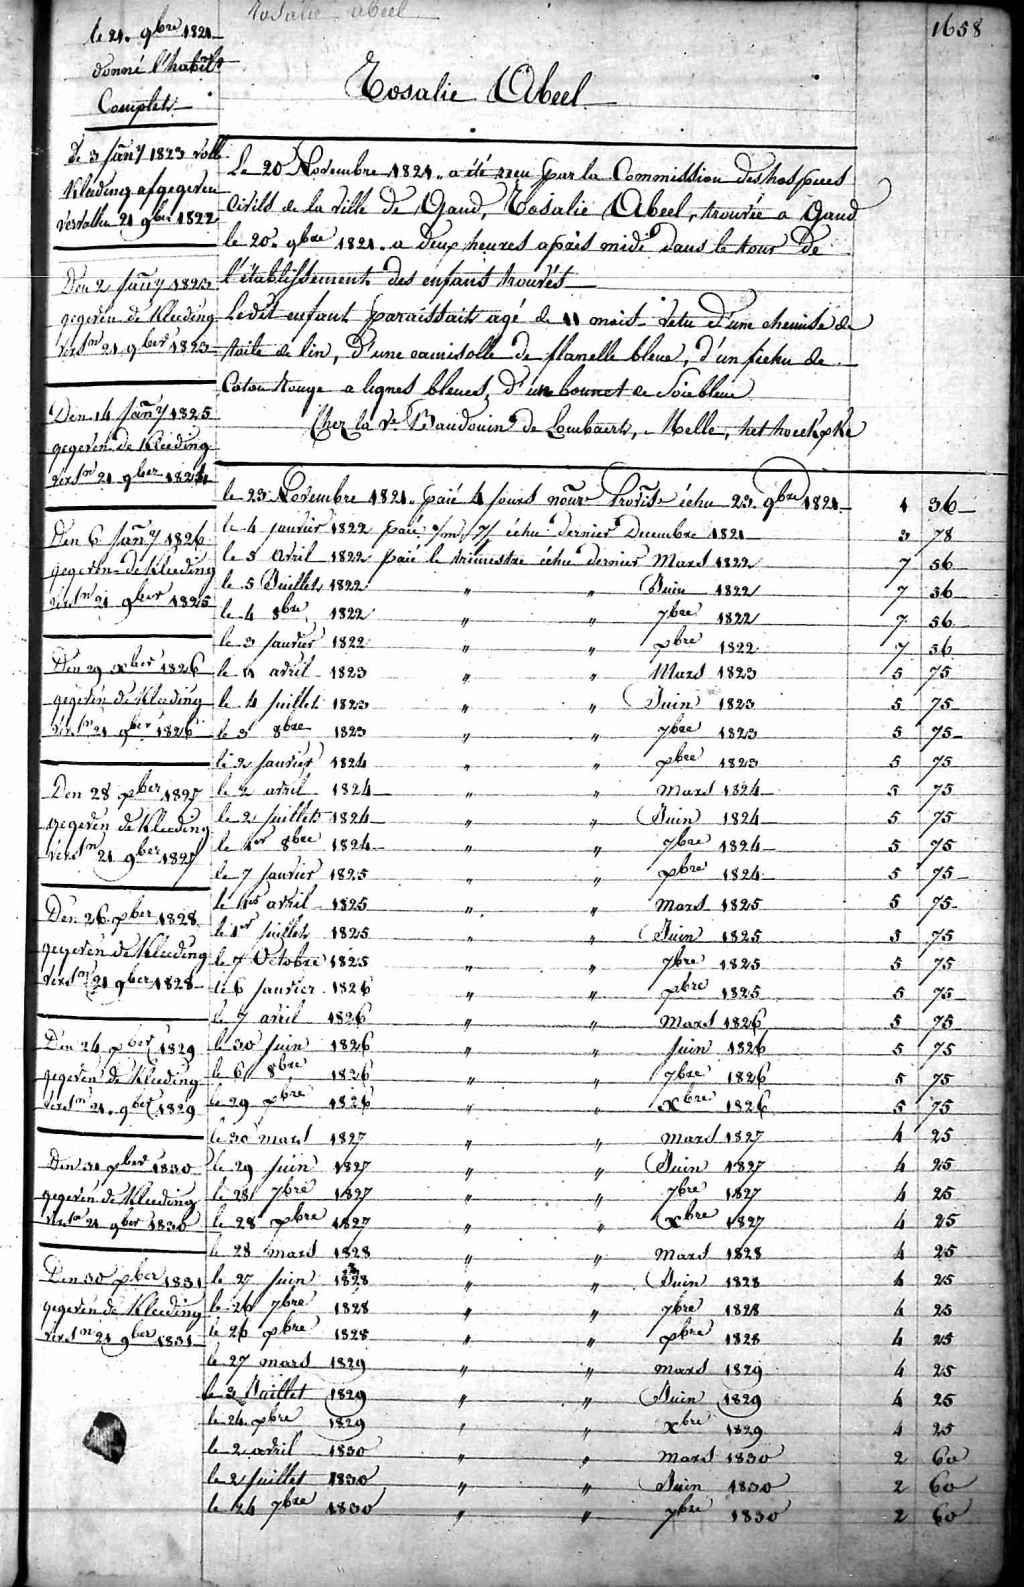 Rosalie Abeel
1658
le 21. 9bre 1821
donné l'habilt
Complets
Rosalie Abeel
De 3 Jany 1823 volle
Kleeding afgegeven
vervallen 21 9ber 1822
Den 2 Jany 1823
gegeven de Kleeding
vers.n 21 9ber 1823
Den 14 Jany 1825
gegeven de Kleeding
vers.n 21 9ber 1824
Den 6 Jany 1826
gegeven de Kleeding
vers.n 21 9ber 1825
Den 29 xber 1826
gegeven de Kleeding
vers.n 21 9ber 1826
Den 28 xber 1827
gegeven de Kleeding
vers.n 21 9ber 1827
Den 26 xber 1828
gegeven de Kleeding
vers.n 21 9ber 1828
Den 24 xber 1829
gegeven de Kleeding
vers.n 21 9ber 1829
Den 31 xber 1830
gegeven de Kleeding
vers.n 21 9ber 1830
Den 30 xber 1831
gegeven de Kleeding
vers.n 21 9ber 1831
Le 20 Novembre 1821. a été reçu par la Commission des hospices
Civils de la ville de Gand, Rosalie Abeel, trouvée a Gand
le 20. 9bre 1821. a deux heures après midi dans le tour de
l'établissement des enfans trouvés
Ledit enfant paraissait agé de 11 mois. vetu d'une chemise de
toile de lin, d'une camisolle de flanelle bleue, d'un fichu de
Coton Rouge a lignes bleues, d'un bonnet de Soie bleue
Chez la Ve Baudouin de Lombaert, Melle, het hoeckske
le 23 Novembre 1821. paié 4 jours nour echu 23. 9bre 1821 1 36
le 4 janvier 1822 paié échu dernier Decembre 1821 3 78
le 5 avril 1822 paié le trimestre échu dernier Mars 1822 7 56
le 5 Juillet 1822 " " Juin 1822 7 56
le 4 8bre 1822 " " 7bre 1822 7 56
le 3 janvier 1822 " " xbre 1822 7 56
le 11 avril 1823 " " Mars 1823 5 75
le 4 juillet 1823 " " Juin 1823 5 75
le 3 8bre 1823 " " 7bre 1823 5 75
le 2 janvier 1824 " " xbre 1823 5 75
le 2 avril 1824 " " Mars 1824 5 75
le 2 juillet 1824 " " Juin 1824 5 75
le 1er 8bre 1824 " " 7bre 1824 5 75
le 7 janvier 1825 " " xbre 1824 5 75
le 1er avril 1825 " " Mars 1825 5 75
le 1er juillet 1825 " " Juin 1825 5 75
le 7 Octobre 1825 " " 7bre 1825 5 75
le 6 janvier 1826 " " xbre 1825 5 75
le 7 avril 1826 " " Mars 1826 5 75
le 30 juin 1826 " " juin 1826 5 75
le 6 8bre 1826 " " 7bre 1826 5 75
le 29 xbre 1826 " " Xbre 1826 5 75
le 30 mars 1827 " " Mars 1827 4 25
le 29 juin 1827 " " Juin 1827 4 25
le 28 7bre 1827 " " 7bre 1827 4 25
le 28 xbre 1827 " " Xbre 1827 4 25
le 28 mars 1828 " " Mars 1828 4 25
le 27 juin 1828 " " Juin 1828 4 25
le 26 7bre 1828 " " 7bre 1828 4 25
le 26 xbre 1828 " " xbre 1828 4 25
le 27 mars 1829 " " Mars 1829 4 25
le 3 Juillet 1829 " " Juin 1829 4 25
le 24 xbre 1829 " " Xbre 1829 4 25
le 2 avril 1830 " " Mars 1830 2 60
le 2 juillet 1830 " " Juin 1830 2 60
le 24 7bre 1830 " " 7bre 1830 2 60